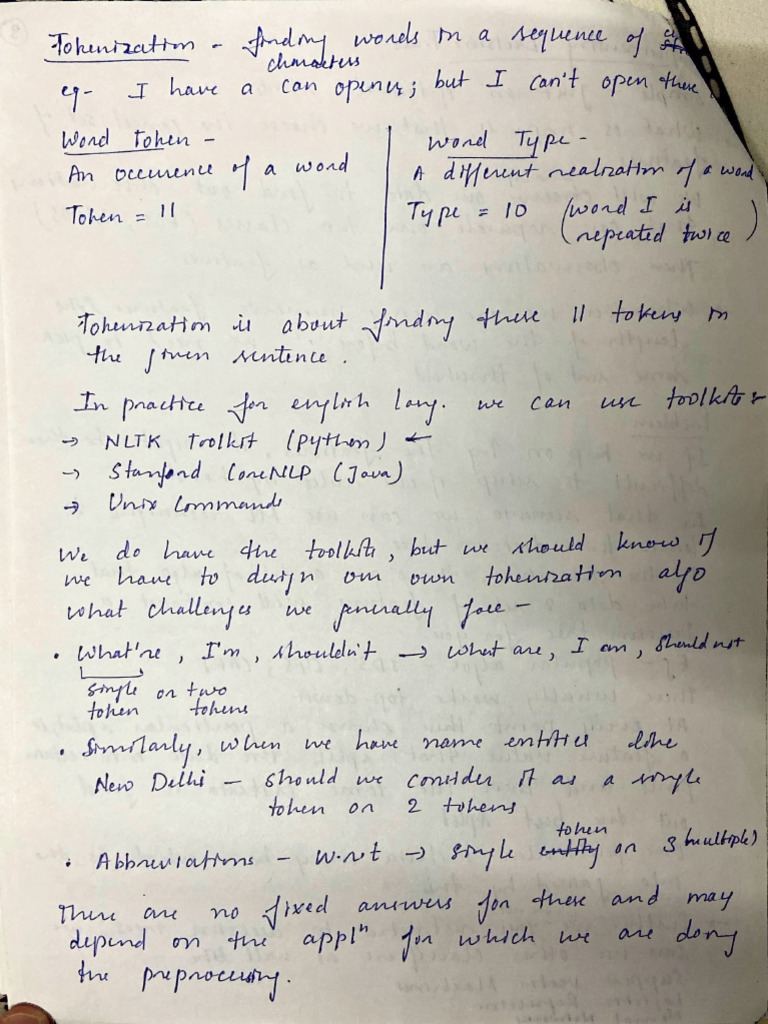 Tokenization - finding words in a sequence of
characters
eg- I have a can opener; but I can't open these
Word Token -
An occurence of a word
Token = 11
Word Type -
A different realization of a word
Type = 10 (word I is
repeated twice)
Tokenization is about finding these 11 tokens in
the given sentence.
In practice for english lang. we can use toolkits
→ NLTK Toolkit (Python) ←
→ Stanford CoreNLP (Java)
→ Unix Commands
We do have the toolkits, but we should know if
we have to design our own tokenization algo
what challenges we generally face -
• What're, I'm, shouldn't → what are, I am, should not
single or two
token tokens
• Similarly, when we have name entities like
New Delhi - should we consider it as a single
token or 2 tokens
token
• Abbreviations - w.r.t → single entity or 3 (multiple)
There are no fixed answers for these and may
depend on the applⁿ for which we are doing
the preprocessing.